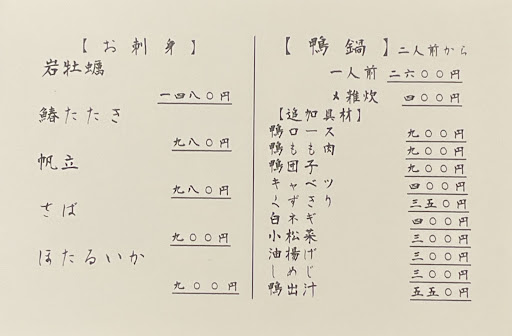 【お刺身】
岩牡蠣
一四八〇円
鰆たたき
九八〇円
帆立
九八〇円
さば
九〇〇円
ほたるいか
九〇〇円
【鴨鍋】二人前から
一人前 二六〇〇円
〆雑炊 四〇〇円
【追加具材】
鴨ロース 九〇〇円
鴨もも肉 九〇〇円
鴨団子 九〇〇円
キャベツ 四〇〇円
くずきり 三五〇円
白ネギ 四〇〇円
小松菜 三〇〇円
油揚げ 三〇〇円
しめじ 三〇〇円
鴨出汁 五五〇円